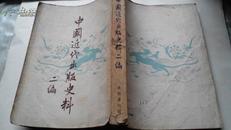 中國近代出版史料
二編
中國近代出版史料二編